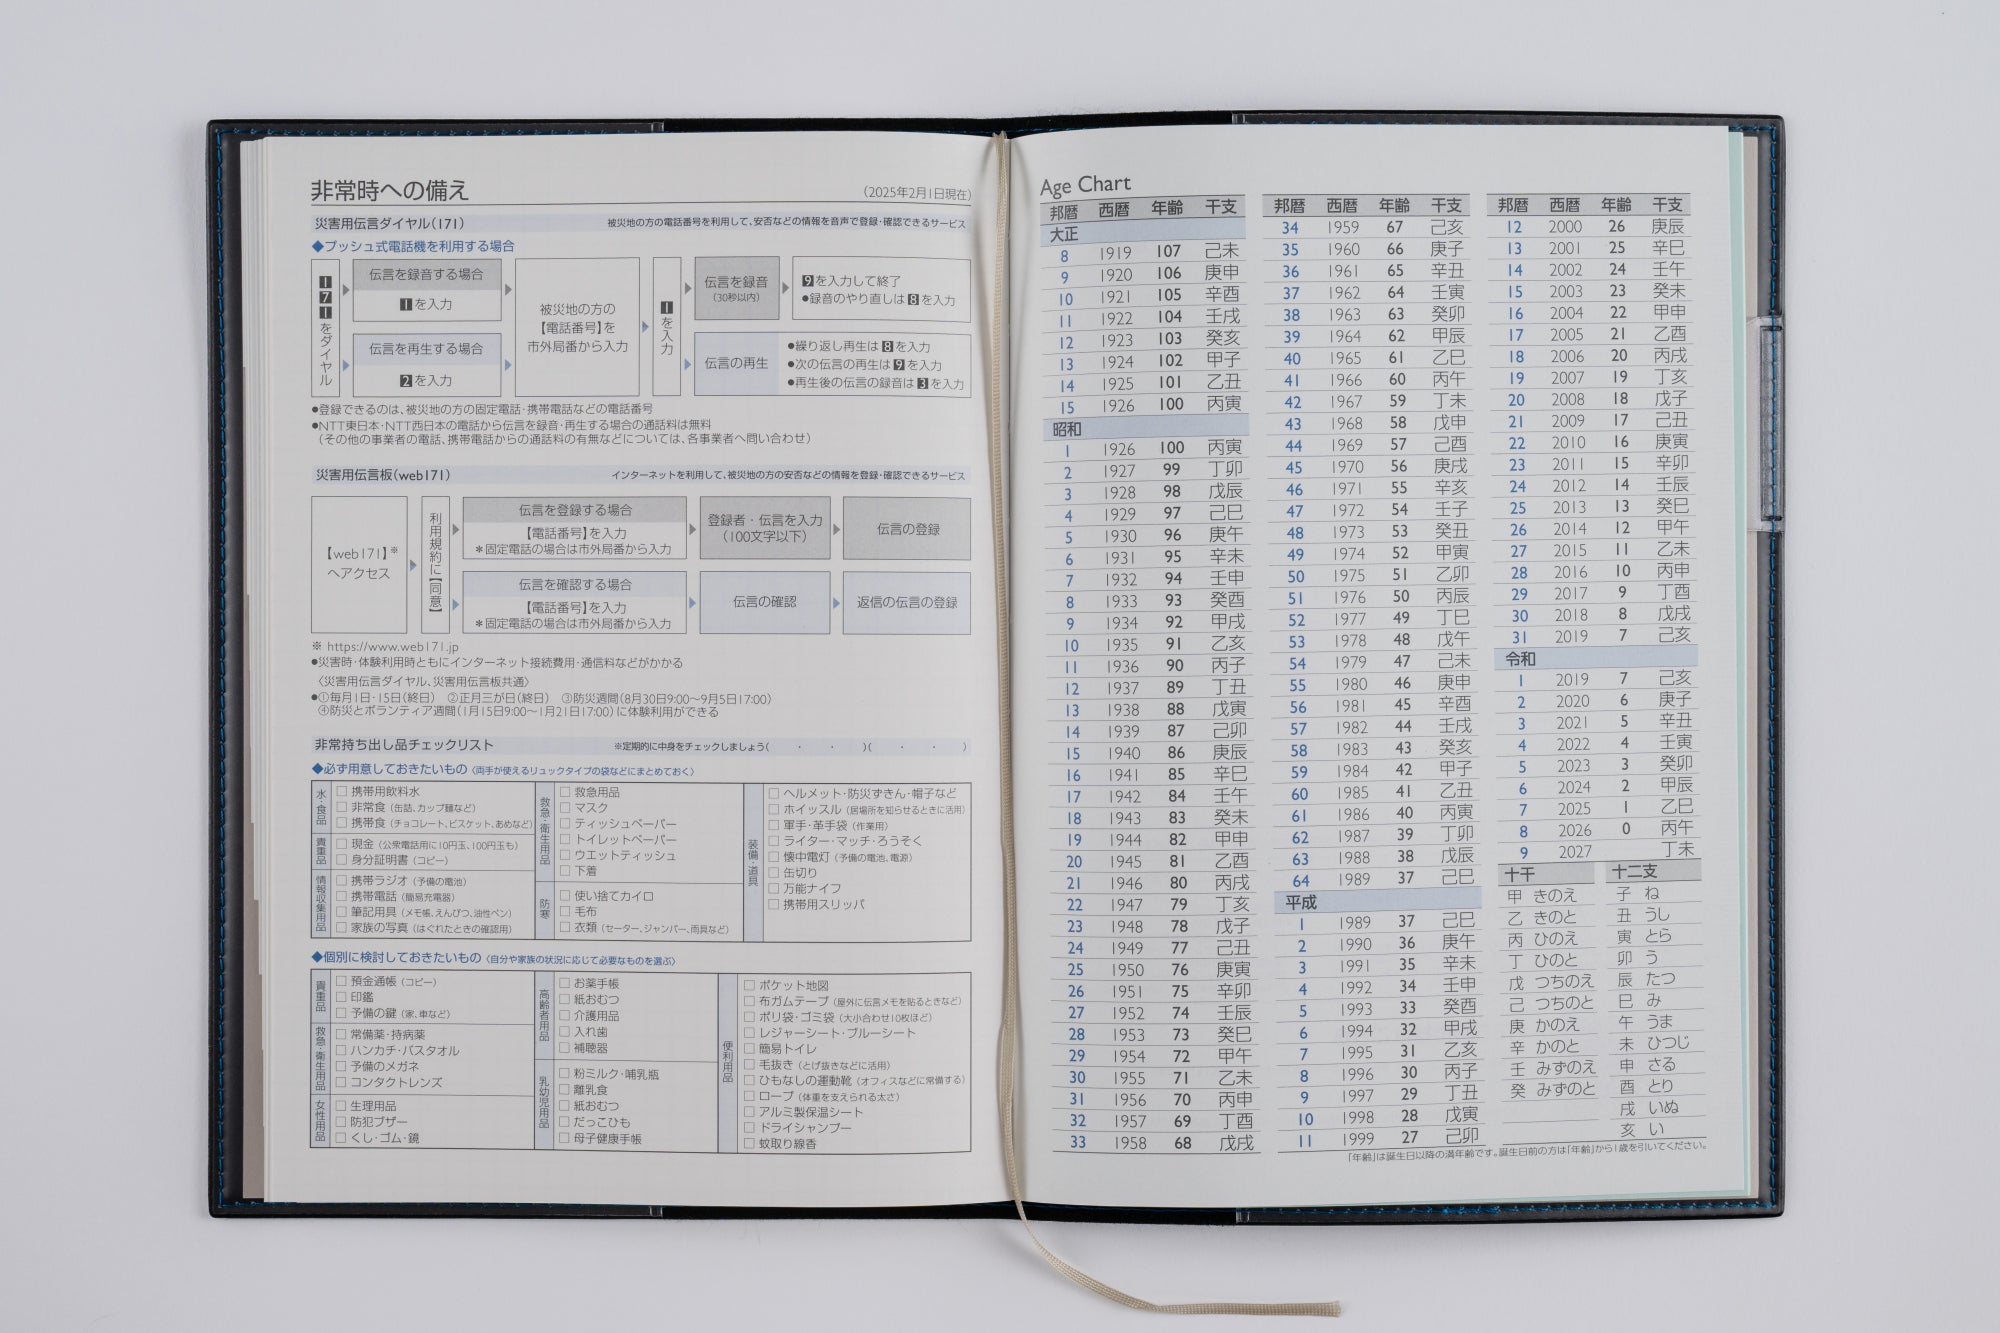 非常時への備え
(2025年2月1日現在)
災害用伝言ダイヤル(171)
被災地の方の電話番号を利用して、安否などの情報を音声で登録・確認できるサービス
◆プッシュ式電話機を利用する場合
171をダイヤル
伝言を録音する場合
1を入力
伝言を再生する場合
2を入力
被災地の方の
【電話番号】を
市外局番から入力
1を入力
伝言を録音
(30秒以内)
9を入力して終了
●録音のやり直しは8を入力
伝言の再生
●繰り返し再生は8を入力
●次の伝言の再生は9を入力
●再生後の伝言の録音は3を入力
●登録できるのは、被災地の方の固定電話・携帯電話などの電話番号
●NTT東日本・NTT西日本の電話から伝言を録音・再生する場合の通話料は無料
(その他の事業者の電話、携帯電話からの通話料の有無などについては、各事業者へ問い合わせ)
災害用伝言板(web171)
インターネットを利用して、被災地の方の安否などの情報を登録・確認できるサービス
【web171】※
へアクセス
利用規約に【同意】
伝言を登録する場合
【電話番号】を入力
*固定電話の場合は市外局番から入力
登録者・伝言を入力
(100文字以下)
伝言の登録
伝言を確認する場合
【電話番号】を入力
*固定電話の場合は市外局番から入力
伝言の確認
返信の伝言の登録
※ https://www.web171.jp
●災害時・体験利用時ともにインターネット接続費用・通信料などがかかる
〈災害用伝言ダイヤル、災害用伝言板共通〉
●①毎月1日・15日(終日) ②正月三が日(終日) ③防災週間(8月30日9:00〜9月5日17:00)
④防災とボランティア週間(1月15日9:00〜1月21日17:00)に体験利用ができる
非常持ち出し品チェックリスト
※定期的に中身をチェックしましょう( ・ ・ )( ・ ・ )
◆必ず用意しておきたいもの〈両手が使えるリュックタイプの袋などにまとめておく〉
水・食品
□ 携帯用飲料水
□ 非常食(缶詰、カップ麺など)
□ 携帯食(チョコレート、ビスケット、あめなど)
貴重品
□ 現金(公衆電話用に10円玉、100円玉も)
□ 身分証明書(コピー)
情報収集用品
□ 携帯ラジオ(予備の電池)
□ 携帯電話(簡易充電器)
□ 筆記用具(メモ帳、えんぴつ、油性ペン)
□ 家族の写真(はぐれたときの確認用)
救急・衛生用品
□ 救急用品
□ マスク
□ ティッシュペーパー
□ トイレットペーパー
□ ウエットティッシュ
□ 下着
防寒
□ 使い捨てカイロ
□ 毛布
□ 衣類(セーター、ジャンパー、雨具など)
装備・道具
□ ヘルメット・防災ずきん・帽子など
□ ホイッスル(居場所を知らせるときに活用)
□ 軍手・革手袋(作業用)
□ ライター・マッチ・ろうそく
□ 懐中電灯(予備の電池、電源)
□ 缶切り
□ 万能ナイフ
□ 携帯用スリッパ
◆個別に検討しておきたいもの〈自分や家族の状況に応じて必要なものを選ぶ〉
貴重品
□ 預金通帳(コピー)
□ 印鑑
□ 予備の鍵(家、車など)
救急・衛生用品
□ 常備薬・持病薬
□ ハンカチ・バスタオル
□ 予備のメガネ
□ コンタクトレンズ
女性用品
□ 生理用品
□ 防犯ブザー
□ くし・ゴム・鏡
高齢者用品
□ お薬手帳
□ 紙おむつ
□ 介護用品
□ 入れ歯
□ 補聴器
乳幼児用品
□ 粉ミルク・哺乳瓶
□ 離乳食
□ 紙おむつ
□ だっこひも
□ 母子健康手帳
便利用品
□ ポケット地図
□ 布ガムテープ(屋外に伝言メモを貼るときなど)
□ ポリ袋・ゴミ袋(大小合わせ10枚ほど)
□ レジャーシート・ブルーシート
□ 簡易トイレ
□ 毛抜き(とげ抜きなどに活用)
□ ひもなしの運動靴(オフィスなどに常備する)
□ ロープ(体重を支えられる太さ)
□ アルミ製保温シート
□ ドライシャンプー
□ 蚊取り線香
Age Chart
邦暦 西暦 年齢 干支
大正
8 1919 107 己未
9 1920 106 庚申
10 1921 105 辛酉
11 1922 104 壬戌
12 1923 103 癸亥
13 1924 102 甲子
14 1925 101 乙丑
15 1926 100 丙寅
昭和
1 1926 100 丙寅
2 1927 99 丁卯
3 1928 98 戊辰
4 1929 97 己巳
5 1930 96 庚午
6 1931 95 辛未
7 1932 94 壬申
8 1933 93 癸酉
9 1934 92 甲戌
10 1935 91 乙亥
11 1936 90 丙子
12 1937 89 丁丑
13 1938 88 戊寅
14 1939 87 己卯
15 1940 86 庚辰
16 1941 85 辛巳
17 1942 84 壬午
18 1943 83 癸未
19 1944 82 甲申
20 1945 81 乙酉
21 1946 80 丙戌
22 1947 79 丁亥
23 1948 78 戊子
24 1949 77 己丑
25 1950 76 庚寅
26 1951 75 辛卯
27 1952 74 壬辰
28 1953 73 癸巳
29 1954 72 甲午
30 1955 71 乙未
31 1956 70 丙申
32 1957 69 丁酉
33 1958 68 戊戌
邦暦 西暦 年齢 干支
34 1959 67 己亥
35 1960 66 庚子
36 1961 65 辛丑
37 1962 64 壬寅
38 1963 63 癸卯
39 1964 62 甲辰
40 1965 61 乙巳
41 1966 60 丙午
42 1967 59 丁未
43 1968 58 戊申
44 1969 57 己酉
45 1970 56 庚戌
46 1971 55 辛亥
47 1972 54 壬子
48 1973 53 癸丑
49 1974 52 甲寅
50 1975 51 乙卯
51 1976 50 丙辰
52 1977 49 丁巳
53 1978 48 戊午
54 1979 47 己未
55 1980 46 庚申
56 1981 45 辛酉
57 1982 44 壬戌
58 1983 43 癸亥
59 1984 42 甲子
60 1985 41 乙丑
61 1986 40 丙寅
62 1987 39 丁卯
63 1988 38 戊辰
64 1989 37 己巳
平成
1 1989 37 己巳
2 1990 36 庚午
3 1991 35 辛未
4 1992 34 壬申
5 1993 33 癸酉
6 1994 32 甲戌
7 1995 31 乙亥
8 1996 30 丙子
9 1997 29 丁丑
10 1998 28 戊寅
11 1999 27 己卯
邦暦 西暦 年齢 干支
12 2000 26 庚辰
13 2001 25 辛巳
14 2002 24 壬午
15 2003 23 癸未
16 2004 22 甲申
17 2005 21 乙酉
18 2006 20 丙戌
19 2007 19 丁亥
20 2008 18 戊子
21 2009 17 己丑
22 2010 16 庚寅
23 2011 15 辛卯
24 2012 14 壬辰
25 2013 13 癸巳
26 2014 12 甲午
27 2015 11 乙未
28 2016 10 丙申
29 2017 9 丁酉
30 2018 8 戊戌
31 2019 7 己亥
令和
1 2019 7 己亥
2 2020 6 庚子
3 2021 5 辛丑
4 2022 4 壬寅
5 2023 3 癸卯
6 2024 2 甲辰
7 2025 1 乙巳
8 2026 0 丙午
9 2027 丁未
十干
甲 きのえ
乙 きのと
丙 ひのえ
丁 ひのと
戊 つちのえ
己 つちのと
庚 かのえ
辛 かのと
壬 みずのえ
癸 みずのと
十二支
子 ね
丑 うし
寅 とら
卯 う
辰 たつ
巳 み
午 うま
未 ひつじ
申 さる
酉 とり
戌 いぬ
亥 い
「年齢」は誕生日以降の満年齢です。誕生日前の方は「年齢」から1歳を引いてください。